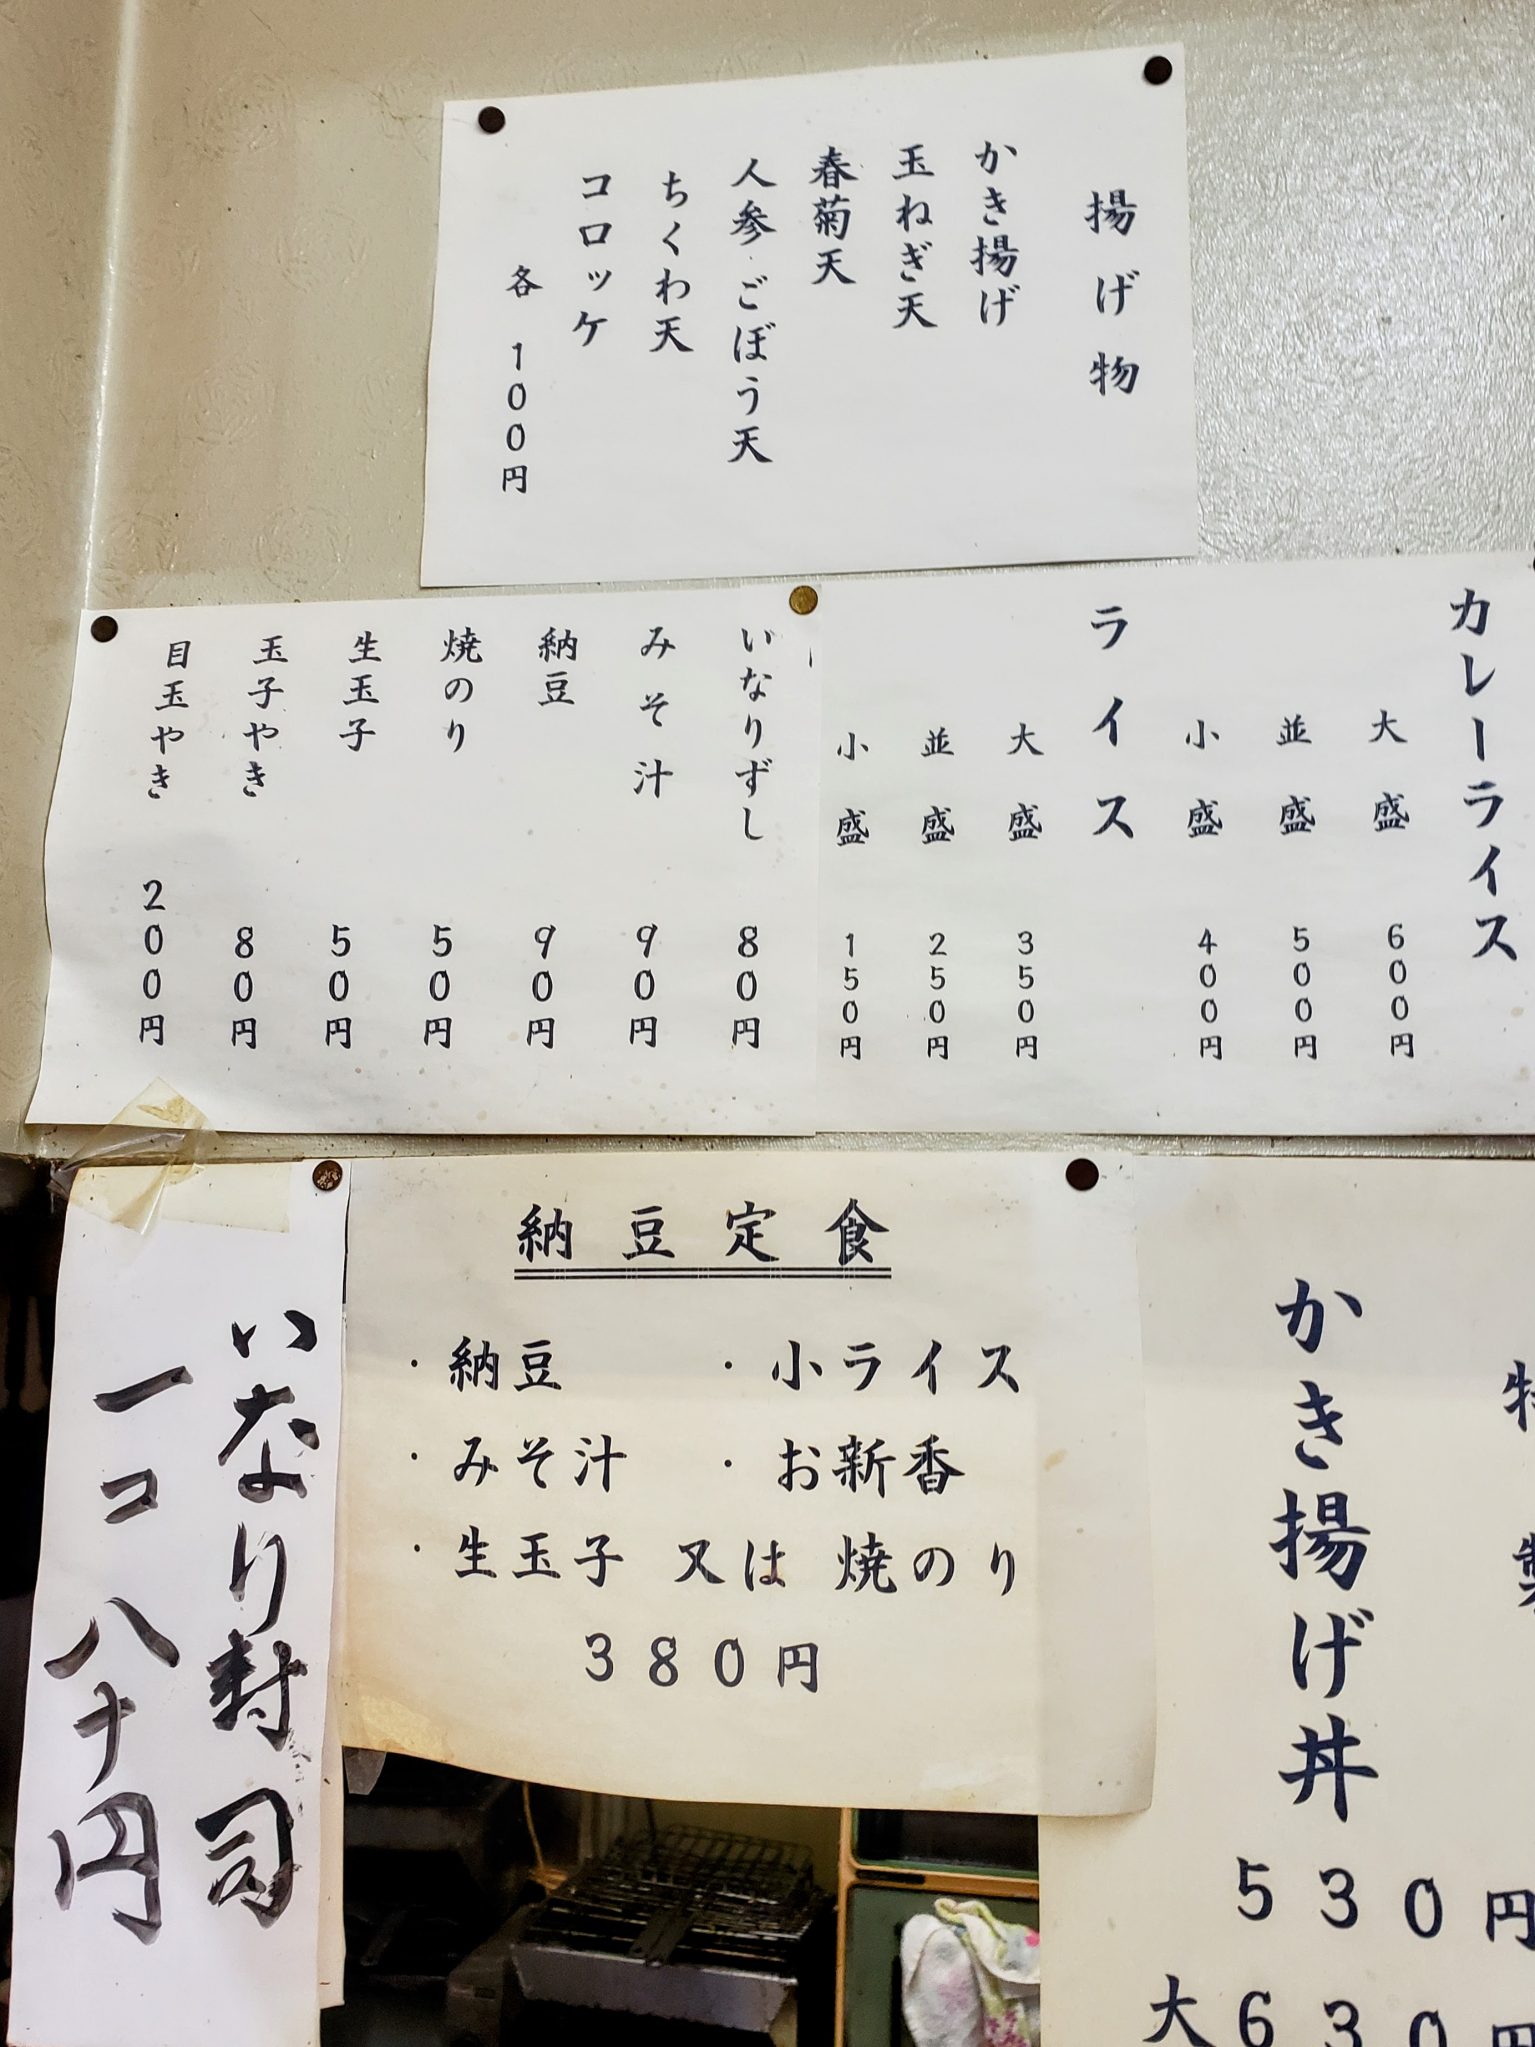 揚げ物
かき揚げ
玉ねぎ天
春菊天
人参・ごぼう天
ちくわ天
コロッケ
各 100円
カレーライス
大盛 600円
並盛 500円
小盛 400円
ライス
大盛 350円
並盛 250円
小盛 150円
いなりずし 80円
みそ汁 90円
納豆 90円
焼のり 50円
生玉子 50円
玉子やき 80円
目玉やき 200円
特製
かき揚げ丼
530円
大630円
納豆定食
・納豆 ・小ライス
・みそ汁 ・お新香
・生玉子 又は 焼のり
380円
いなり寿司
一コ 八十円